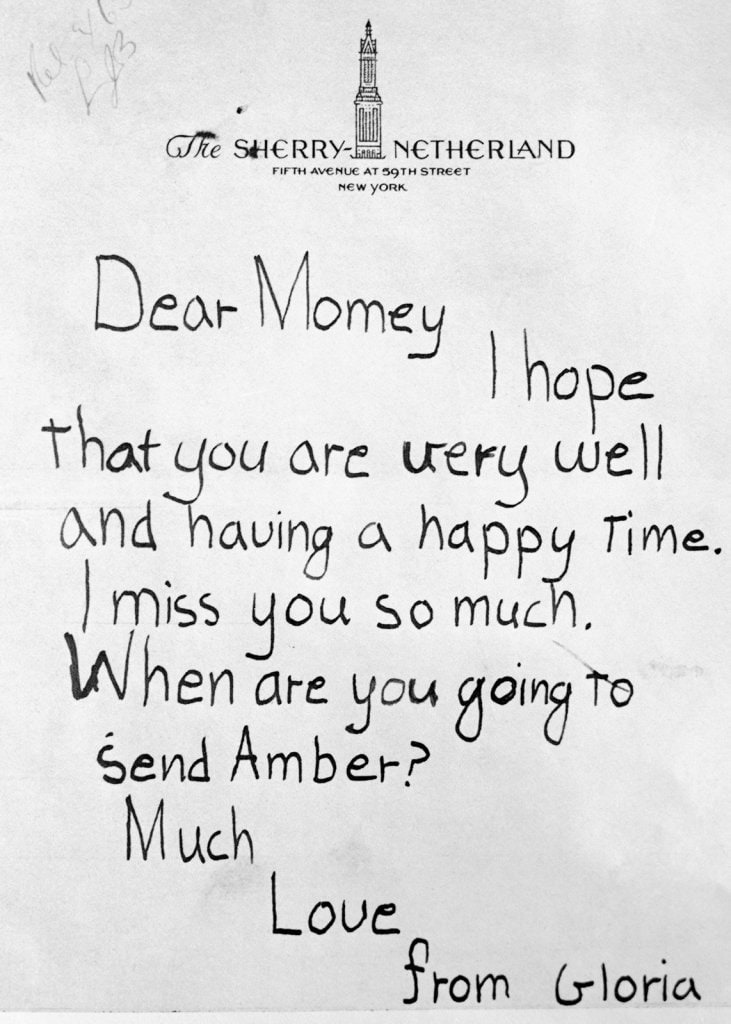 The SHERRY-NETHERLAND
FIFTH AVENUE AT 59TH STREET
NEW YORK
Dear Momey
I hope
that you are very well
and having a happy Time.
I miss you so much.
When are you going to
send Amber?
Much
Love
from Gloria